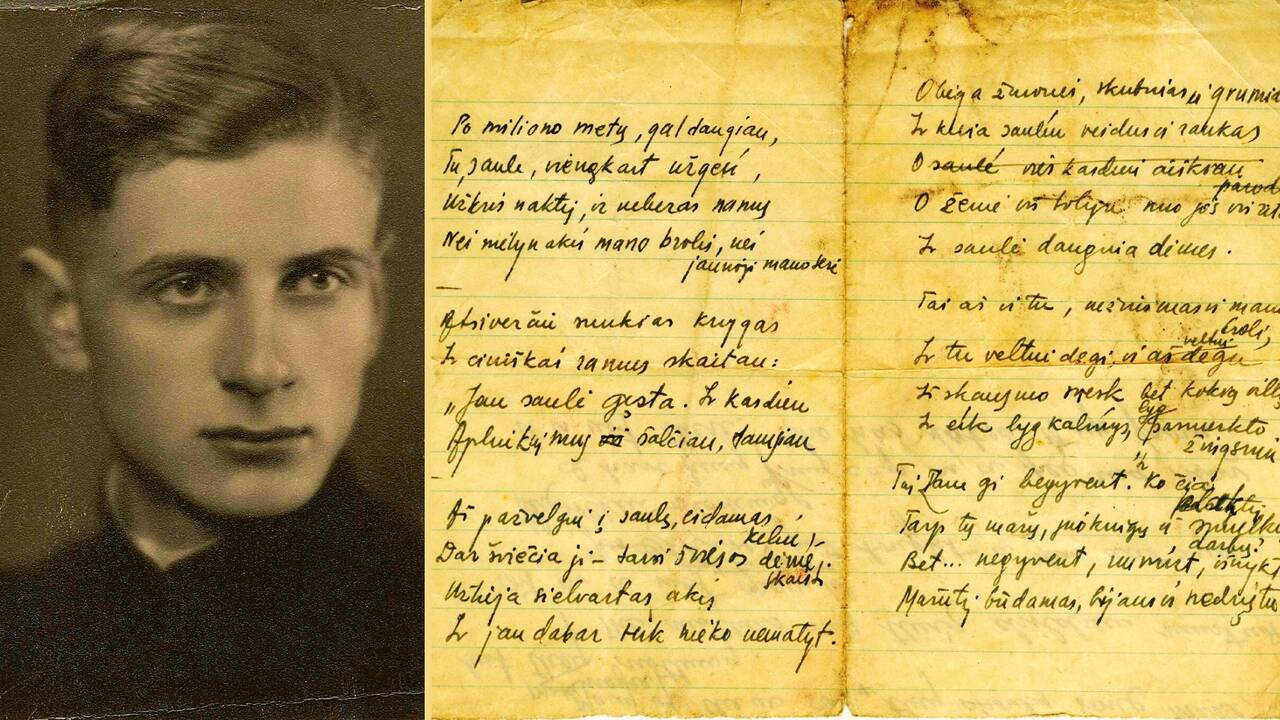 Po miliono metų, gal daugiau,
Tu, saule, vienąkart užgesi,
Užkris naktis, ir neberas namų
Nei mėlynakis mano brolis, nei
jaunoji mano sesė
Atsiverčiau sunkias knygas
Ir ciniškai ramus skaitau:
„Jau saulė gęsta. Ir kasdien
Aplinkui mus šalčiau, tamsiau
Aš pažvelgiu į saulę, eidamas
keliu,
Dar šviečia ji – tarsi šviesos dėmė,
skaisti
Užlieja sielvartas akis
Ir jau dabar tiek nieko nematyt.
žmonės, skubinas ir grumia
Ir kaisia saulėn veidus ir rankas
O saulė vis kasdien aiškiau
O žemė vis tolyn nuo jos
Ir saulė daugina dėmes.
Tai aš ir tu, nežinomasis mano
broli,
veltui
Ir tu veltui degi, ir aš degu
Iš skausmo mesk bet kokią vilt
lyg
Ir eik lyg kalinys, pasmerkto
žingsniu
Tai kam gi begyvent. Ir ko čia
Tarp tų mažų, juokingų ir smulkių
darbų?
Bet... negyvent, numirt, išnykt
būdamas, bijaus ir nedrįstu